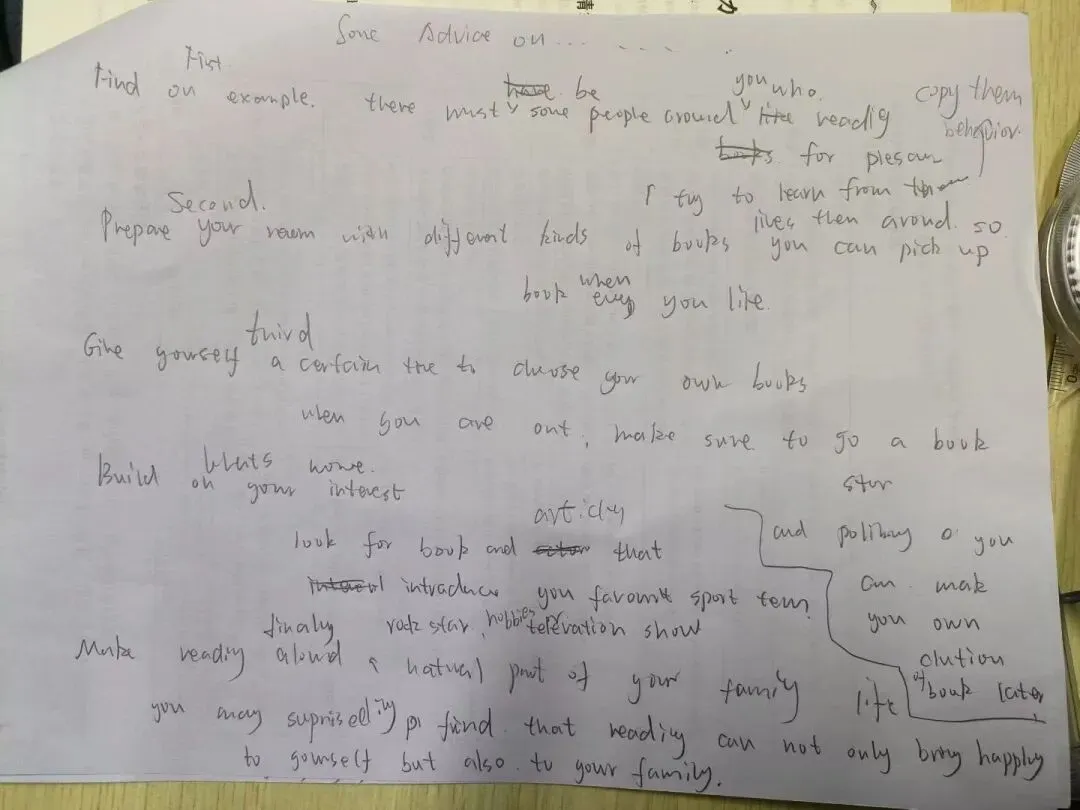 Some Advice on... ....
First
Find on example. there must have be some people around you who like readig copy them behavior.
books for plesaur
try to learn from them
Second.
lives then around. so
Prepare your room with different kinds of books you can pick up
book when every you like.
third
Give yourself a certain tie to choose your own books
when you are out, make sure to go a book
stor
and you
can mak
you own
of book later
Build on your interest
whats more.
look for book and that
introduce you favourit sport tem
rock star, hobbies television show
finaly
Make readig aloud a natural part of your family life
you may suprisedly find that readig can not only bring happly
to yourself but also to your family.